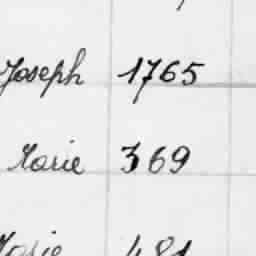 Joseph 1765
Marie 369
Marie 481